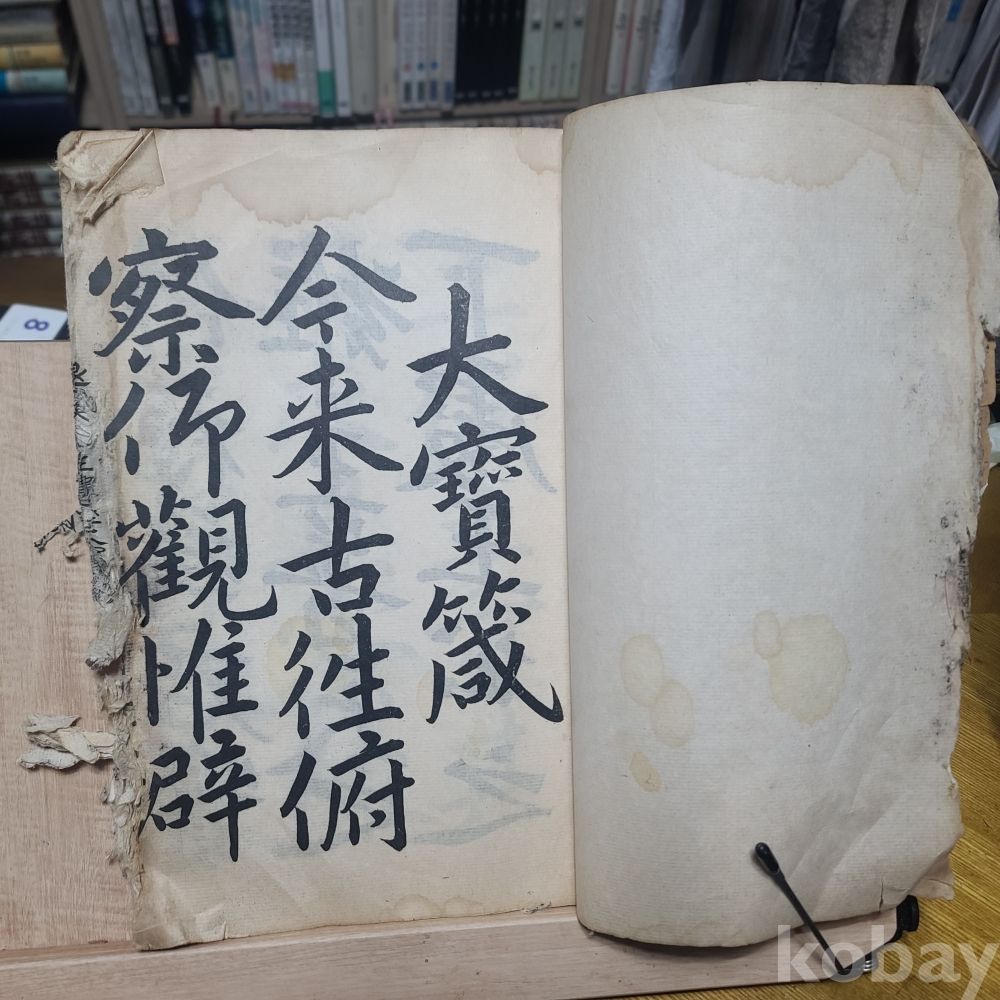 大寶箴
今来古往俯
察仰觀惟辟
8
kobay